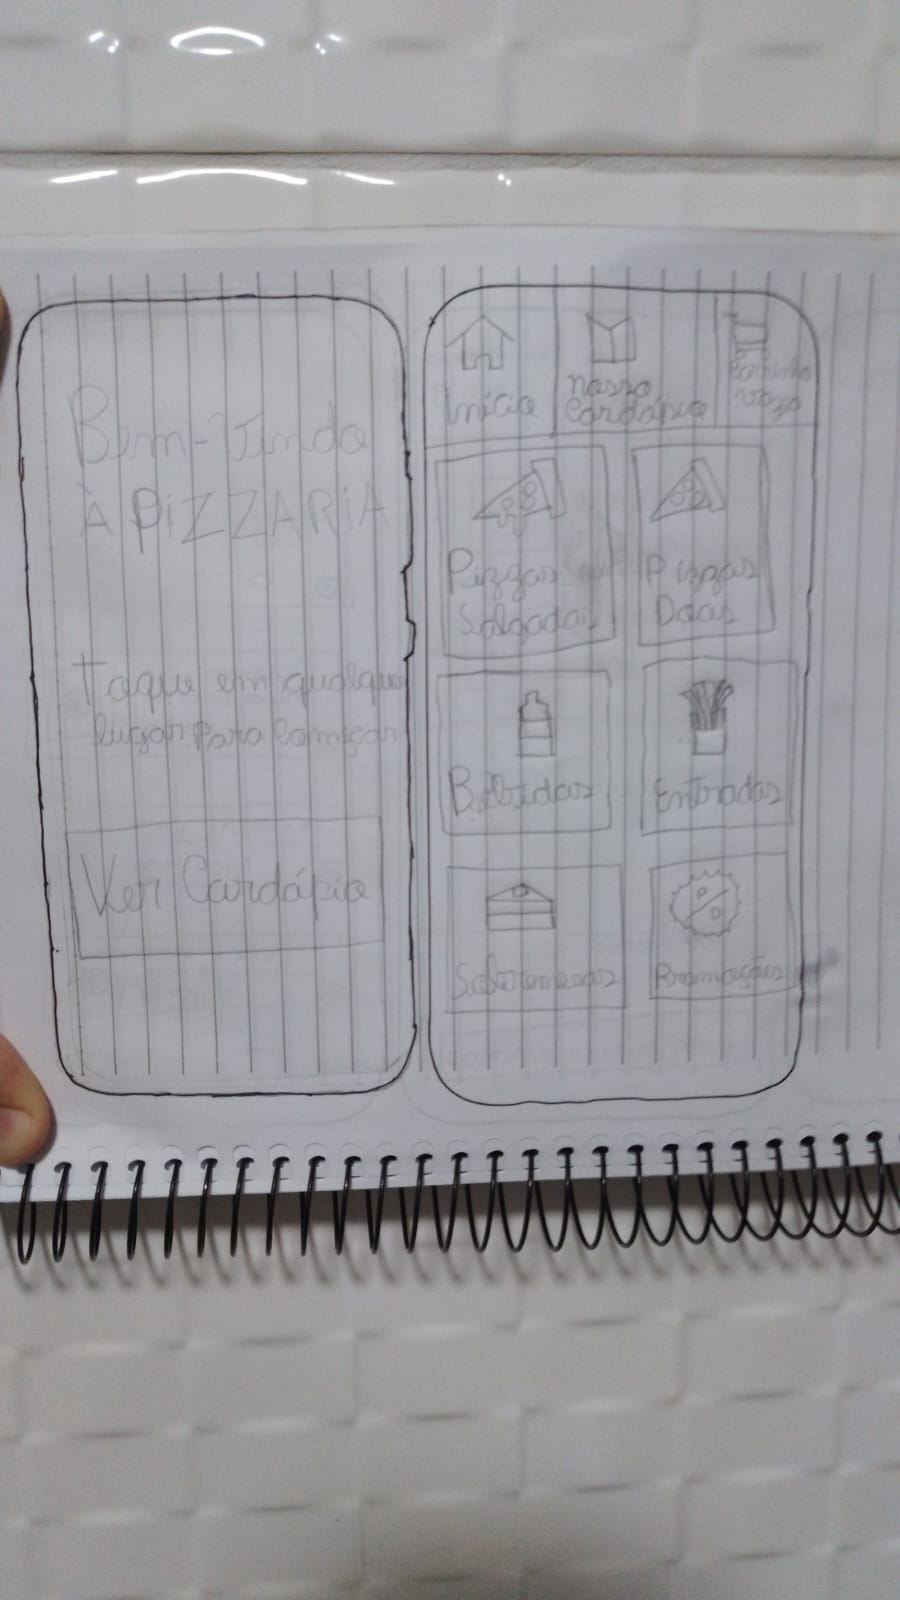 Bem-Vindo
À PiZZARiA
Toque em qualquer
lugar para começar
Ver Cardápio
início
nosso
Cardápio
Carrinho
Vazio
Pizzas
Salgadas
Pizzas
Doces
Bebidas
Entradas
Sobremesas
Promoções